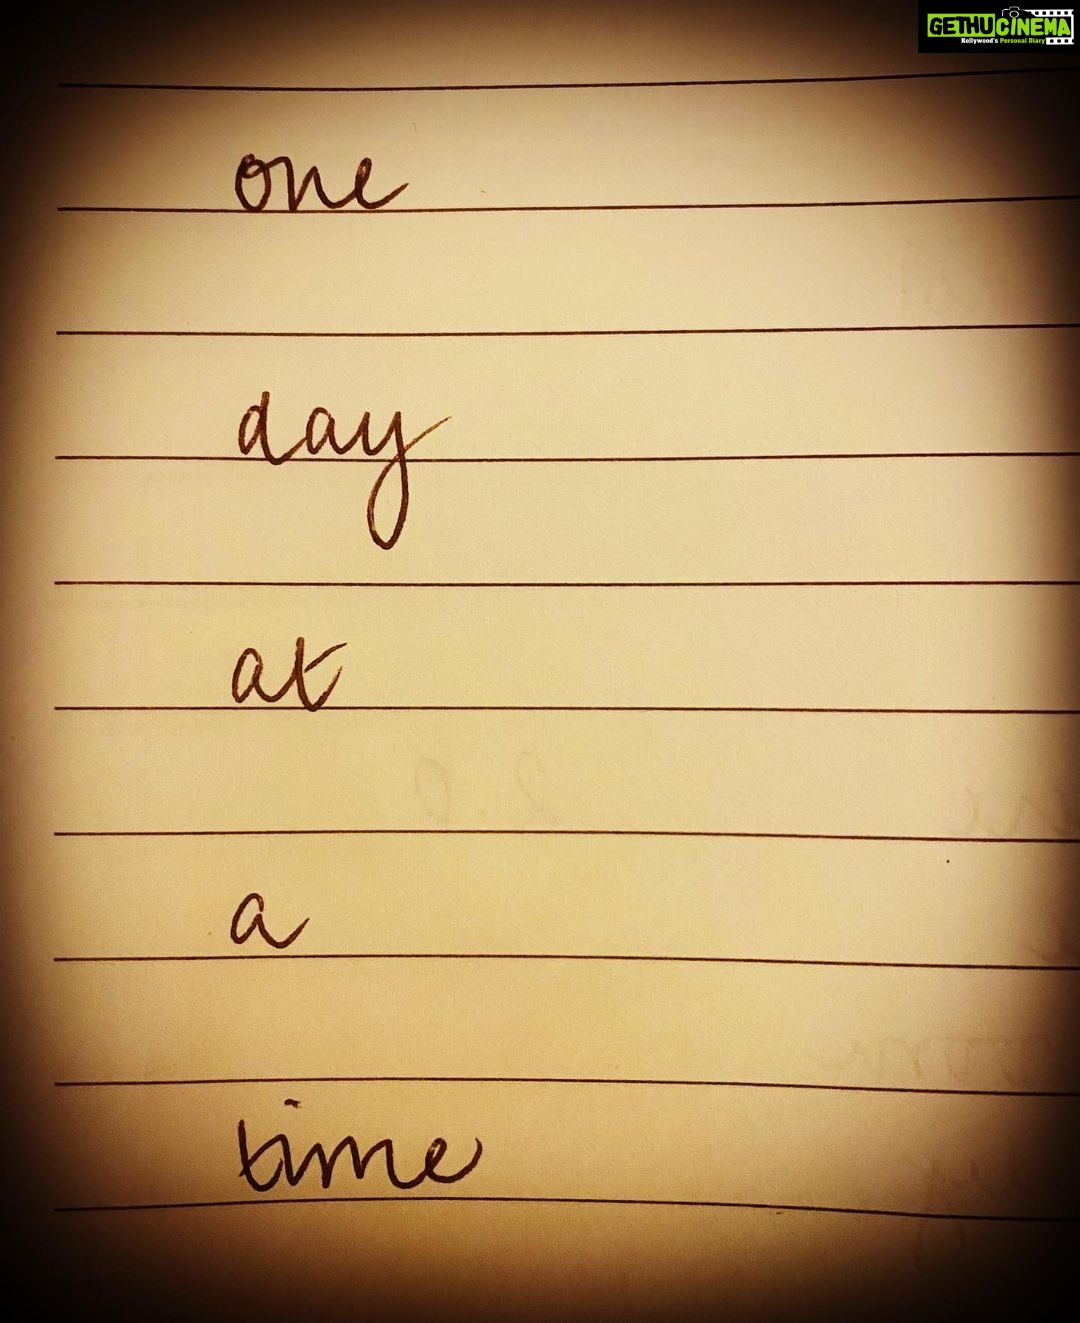 GETHUCINEMA
Kollywood's Personal Diary
one
day
at
a
time
2.0